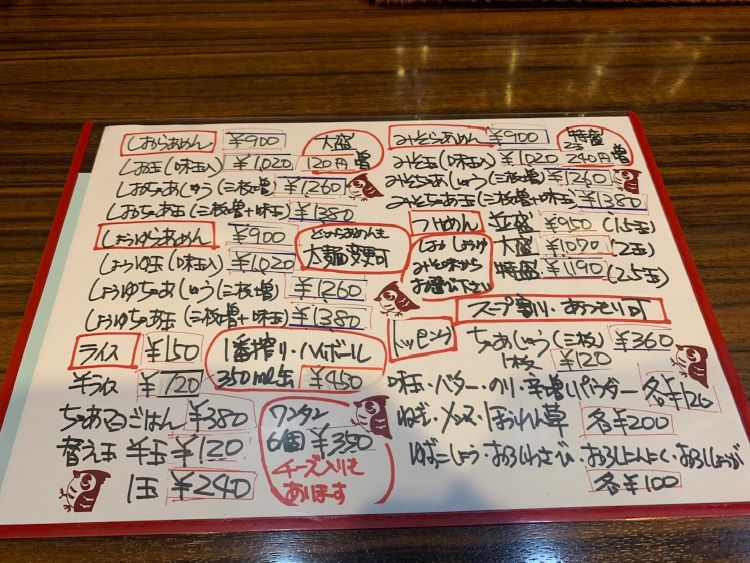 しおらあめん ¥900
大盛
120円増
しお玉(味玉入) ¥1,020
しおちゃあしゅう(三枚増) ¥1260
しおちゃあ玉(三枚増+味玉) ¥1380
しょうゆらあめん ¥900
どのらあめんも
太麺変更可
しょうゆ玉(味玉入) ¥1,020
しょうゆちゃあしゅう(三枚増) ¥1260
しょうゆちゃあ玉(三枚増+味玉) ¥1380
ライス ¥150
半ライス ¥120
ちゃあマヨごはん ¥380
替え玉 半玉 ¥120
1玉 ¥240
1番搾り・ハイボール
350ml缶 ¥450
ワンタン
6個 ¥350
チーズ入りも
あります
みそらあめん ¥900
特盛
240円増
みそ玉(味玉入) ¥1,020
みそちゃあしゅう(三枚増) ¥1260
みそちゃあ玉(三枚増+味玉) ¥1380
つけめん 並盛 ¥950(1.5玉)
大盛 ¥1070(2玉)
特盛 ¥1190(2.5玉)
しお しょうゆ
みそ味から
お選び下さい
スープ割り・あつもり可
トッピング
ちゃあしゅう(三枚) ¥360
1枚 ¥120
味玉・バター・のり・辛増しパウダー 各¥120
ねぎ・メンマ・ほうれん草 各¥200
ゆずこしょう・おろしわさび・おろしにんにく・おろししょうが
各¥100